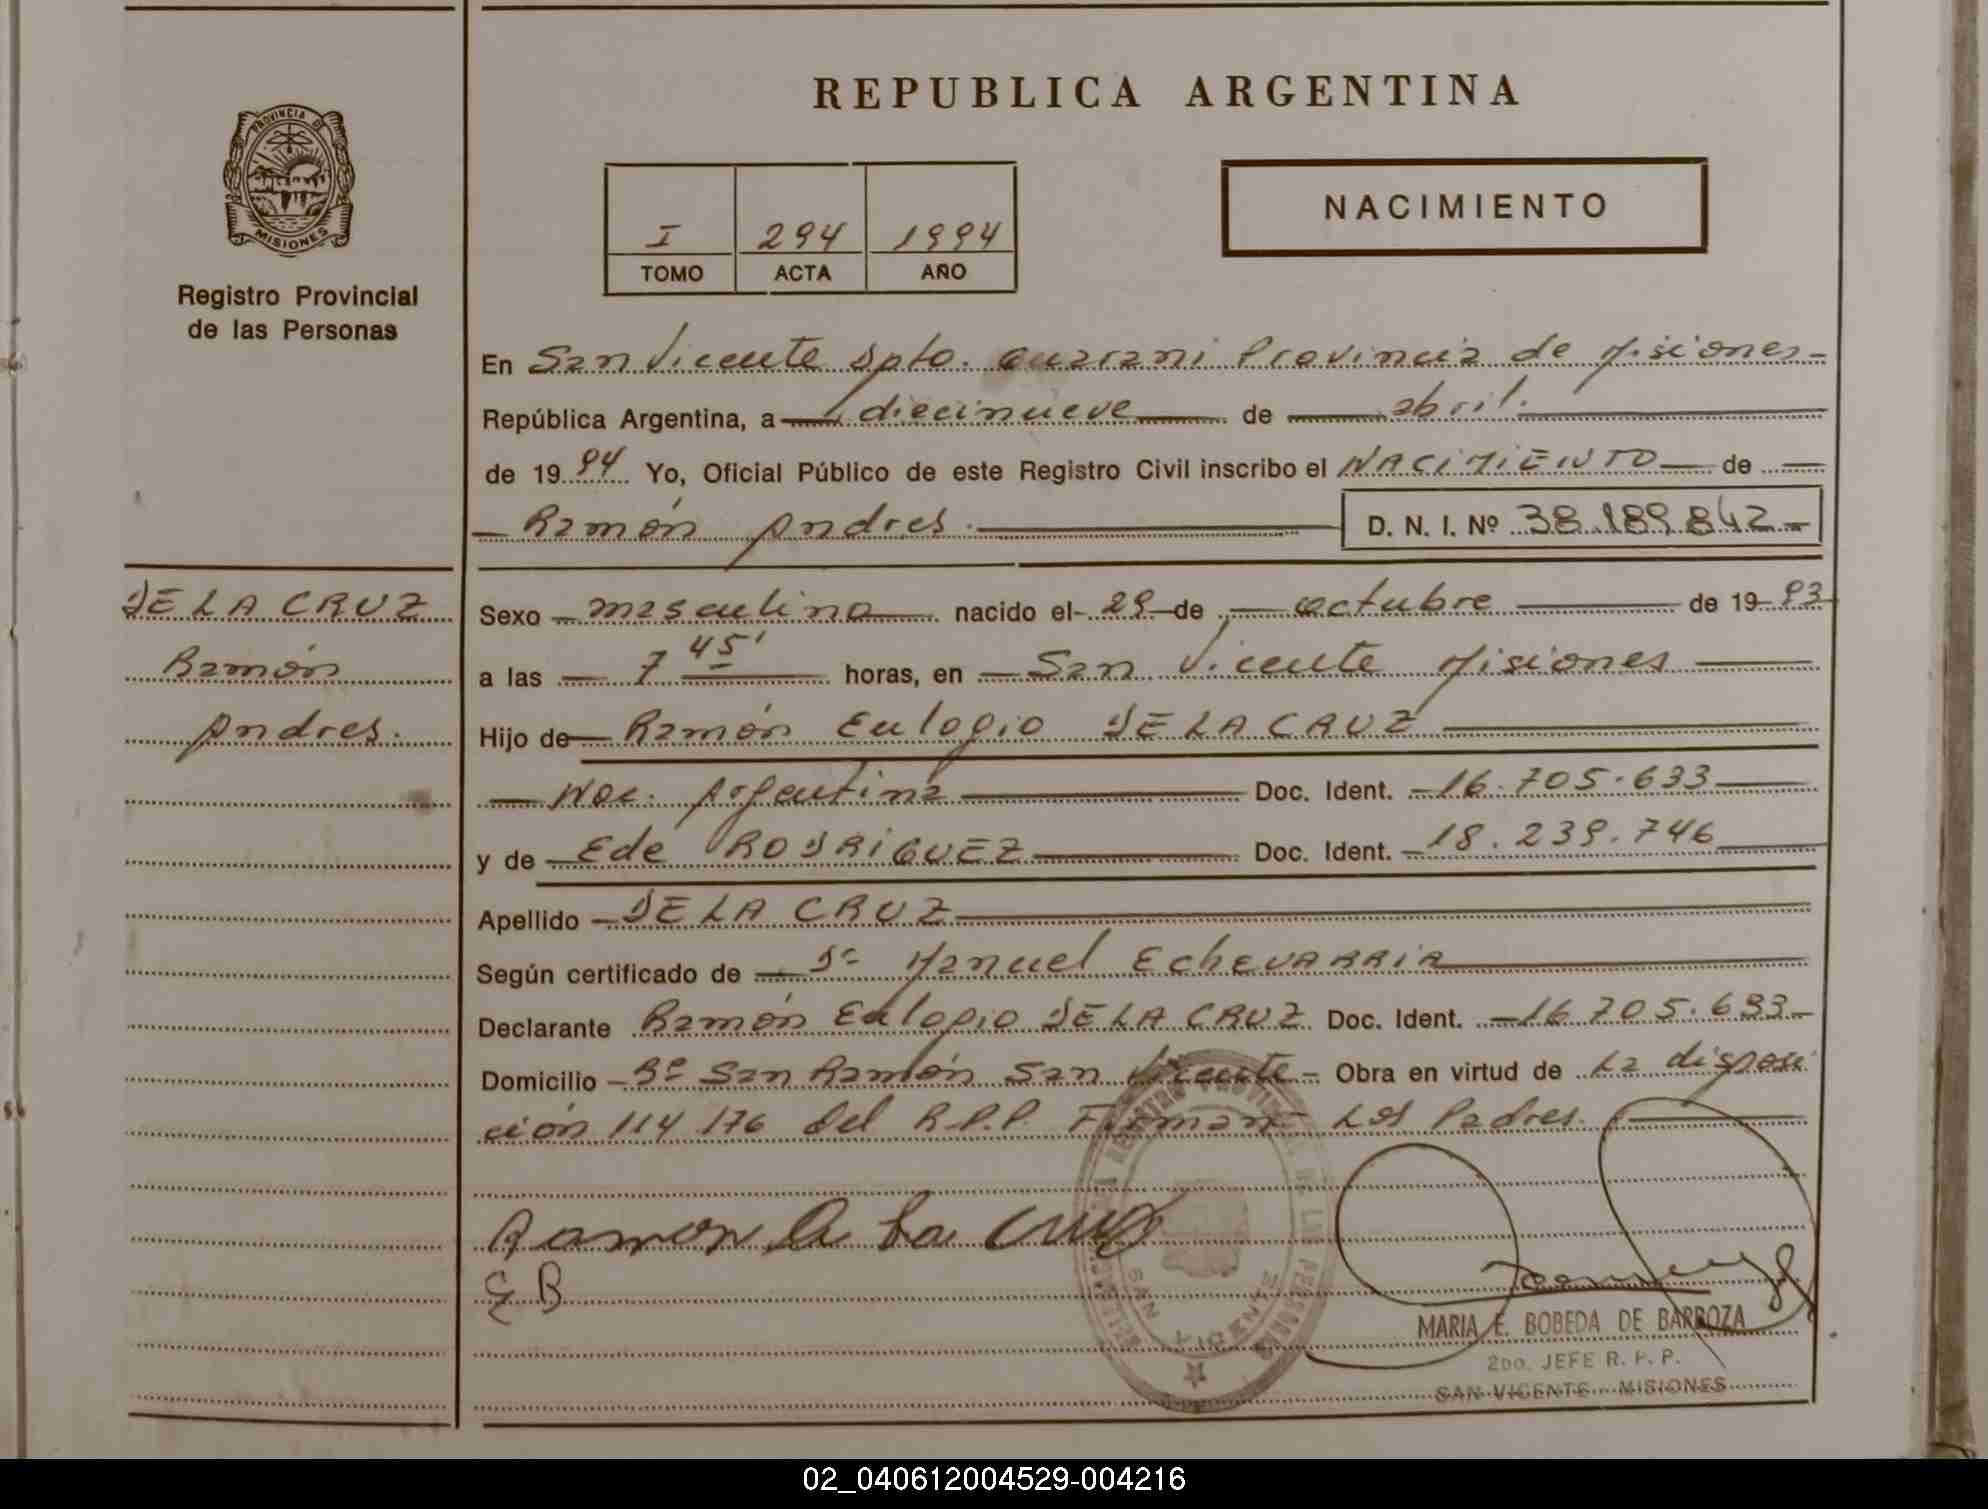 REPUBLICA ARGENTINA
PROVINCIA DE
MISIONES
Registro Provincial
de las Personas
I 294 1994
TOMO ACTA AÑO
NACIMIENTO
En San Vicente Dpto. Guarani Provincia de Misiones
República Argentina, a diecinueve de abril.
de 1994 Yo, Oficial Público de este Registro Civil inscribo el NACIMIENTO de
Ramón Andres. D. N. I. Nº 38.189.842
DE LA CRUZ
Ramón
Andres.
Sexo masculino nacido el 29 de octubre de 1993
a las 7 45' horas, en San Vicente Misiones
Hijo de Ramón Eulogio DE LA CRUZ
Nac. Argentina Doc. Ident. 16.705.633
y de Ede RODRIGUEZ Doc. Ident. 18.239.746
Apellido DE LA CRUZ
Según certificado de Dr Manuel EchevARRIA
Declarante Ramón Eulogio DE LA CRUZ Doc. Ident. 16.705.633
Domicilio Bº San Ramón San Vicente Obra en virtud de La disposi
ción 114/76 del R.P.P. Firman Los Padres.
Ramon de la Cruz
MARIA E. BOBEDA DE BARROZA
2DO. JEFE R. P. P.
SAN VICENTE - MISIONES
SAN VICENTE
02_040612004529-004216